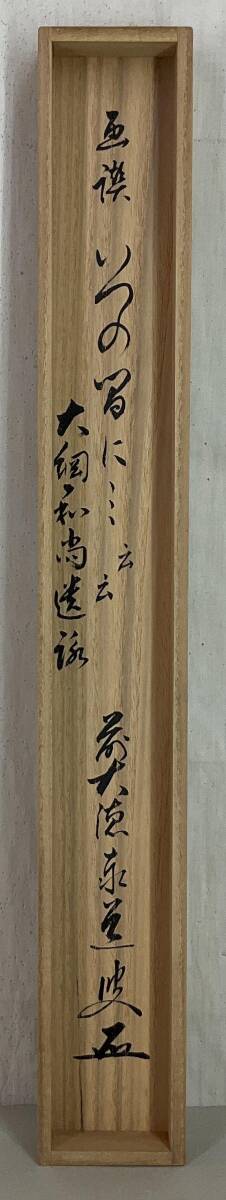 画讃 いつの間にミミ云云
大綱和尚遺詠
前大徳泰道叟